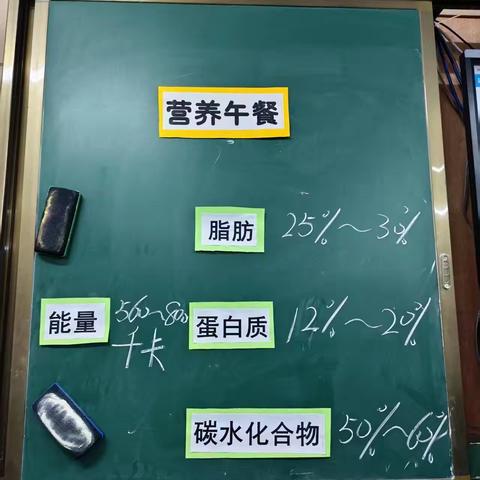 营养午餐
脂肪 25%~30%
能量 560~800千卡
蛋白质 12%~20%
碳水化合物 50%~65%